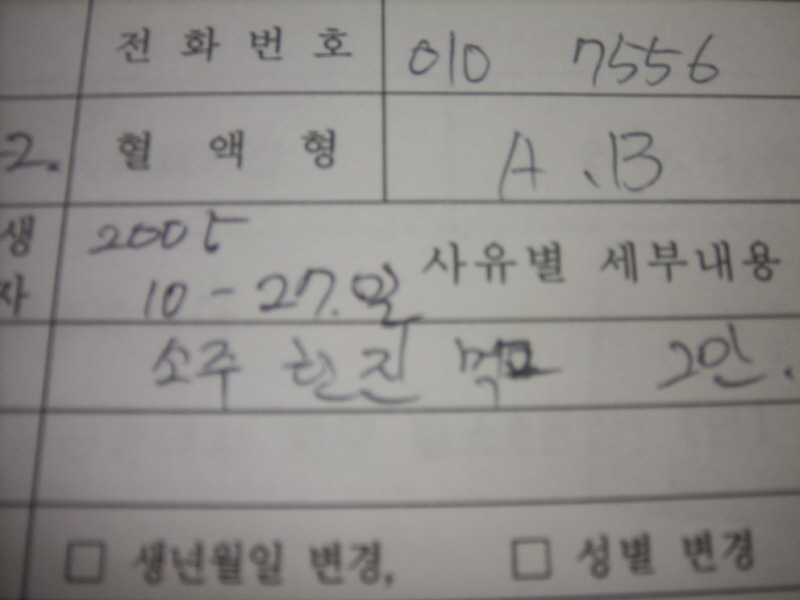 전 화 번 호 010 7556
-2. 혈 액 형 A.B
생 2005 사유별 세부내용
자 10-27.일
소주 한잔 먹고
□ 생년월일 변경, □ 성별 변경